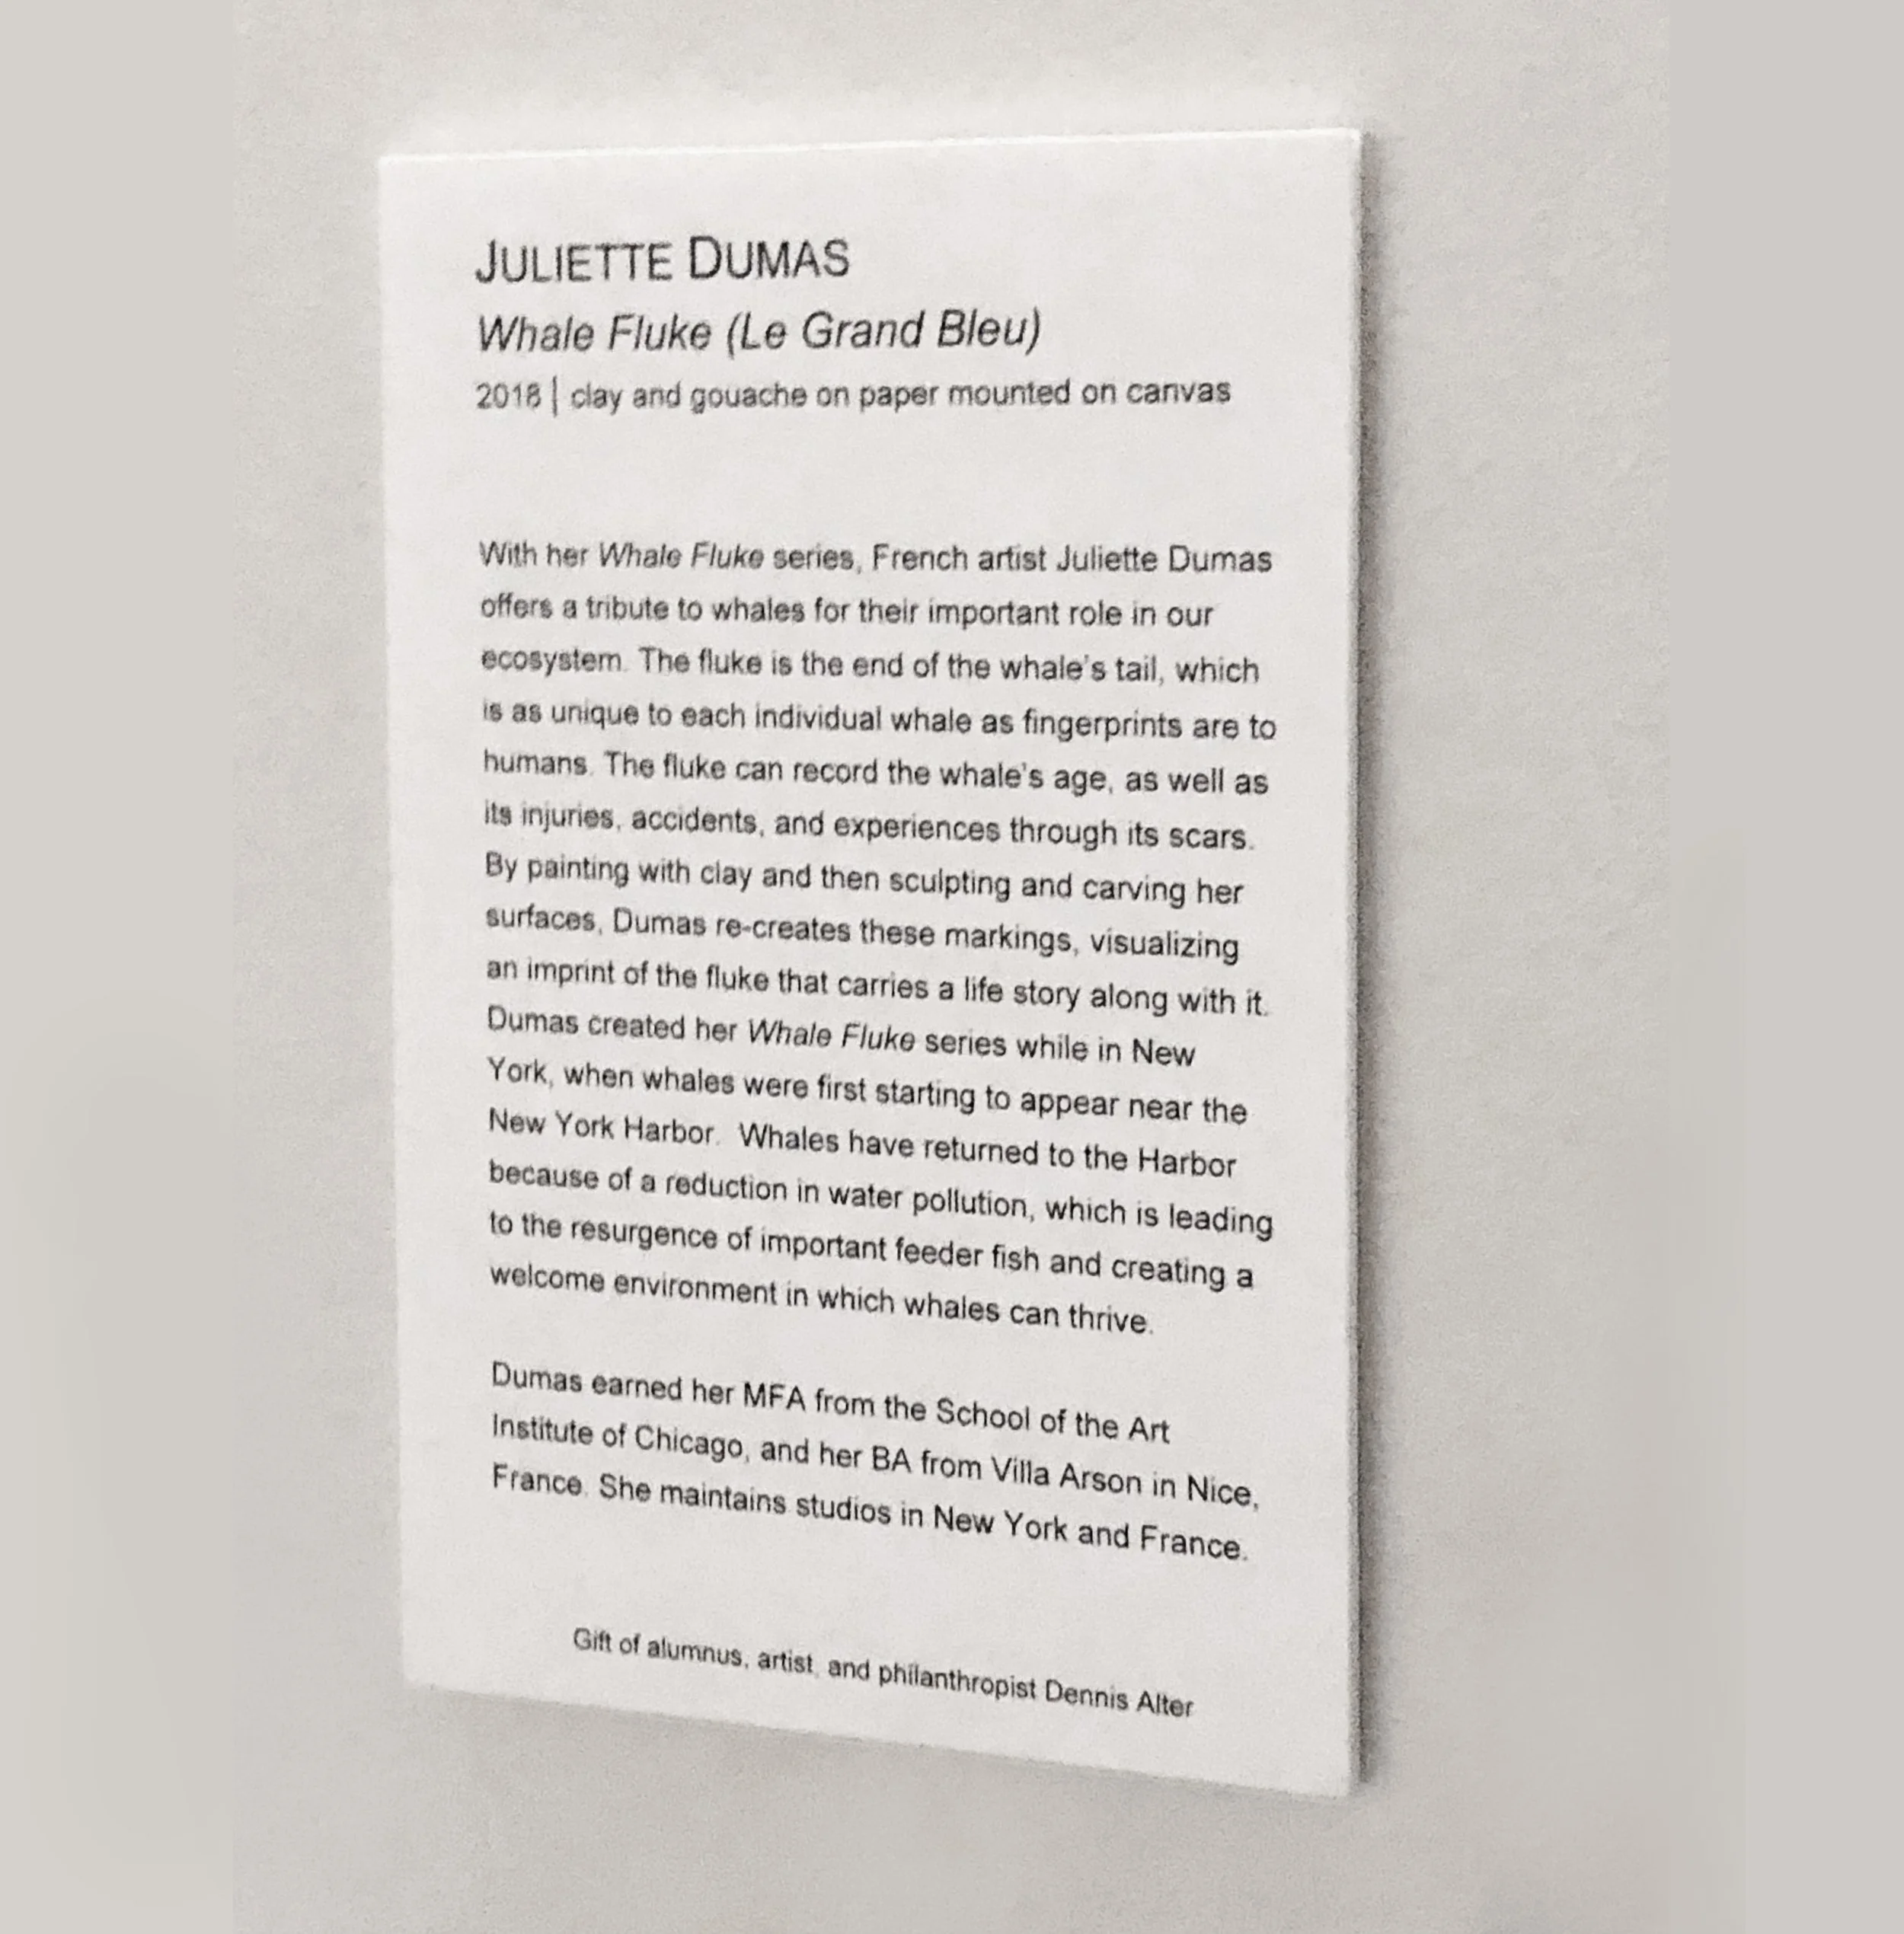 JULIETTE DUMAS
Whale Fluke (Le Grand Bleu)
2018 | clay and gouache on paper mounted on canvas
With her Whale Fluke series, French artist Juliette Dumas
offers a tribute to whales for their important role in our
ecosystem. The fluke is the end of the whale's tail, which
is as unique to each individual whale as fingerprints are to
humans. The fluke can record the whale's age, as well as
its injuries, accidents, and experiences through its scars.
By painting with clay and then sculpting and carving her
surfaces, Dumas re-creates these markings, visualizing
an imprint of the fluke that carries a life story along with it.
Dumas created her Whale Fluke series while in New
York, when whales were first starting to appear near the
New York Harbor.  Whales have returned to the Harbor
because of a reduction in water pollution, which is leading
to the resurgence of important feeder fish and creating a
welcome environment in which whales can thrive.
Dumas earned her MFA from the School of the Art
Institute of Chicago, and her BA from Villa Arson in Nice,
France. She maintains studios in New York and France.
Gift of alumnus, artist, and philanthropist Dennis Alter